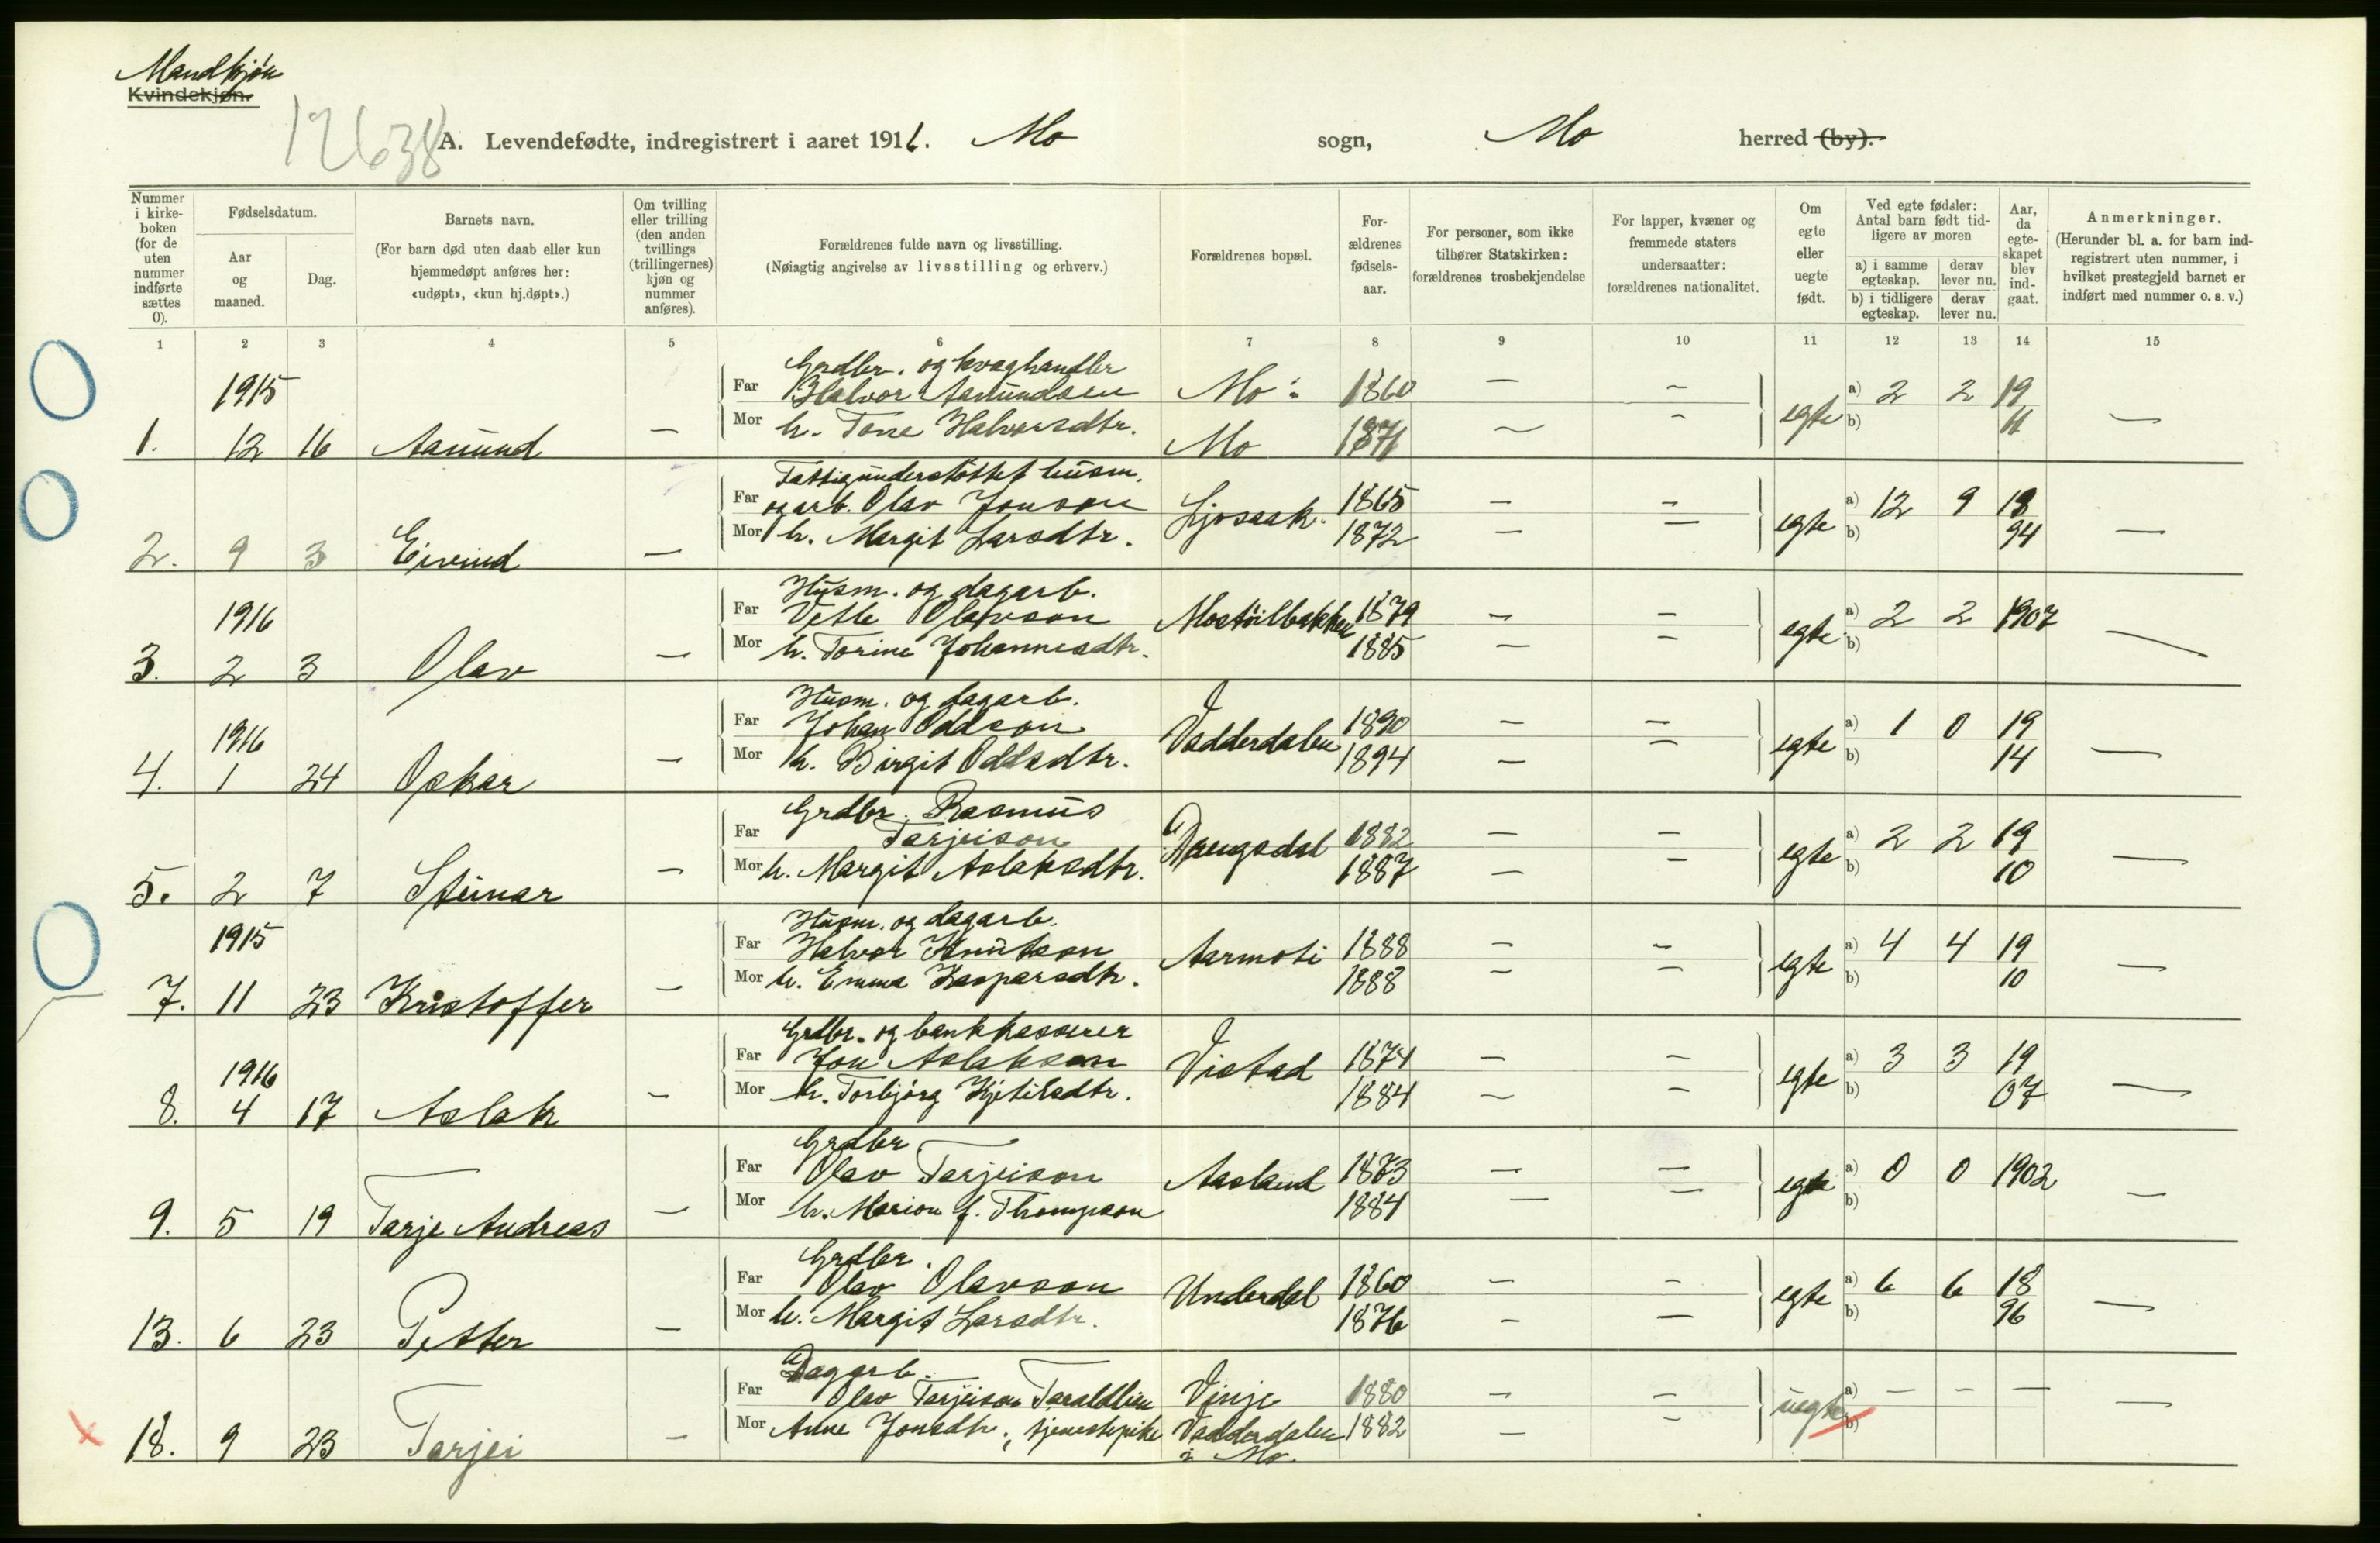 Mandkjøn
Kvindekjøn.
12638
A. Levendefødte, indregistrert i aaret 1916. Mo sogn, Mo herred (by).
Nummer i kirke-boken (for de uten nummer indførte sættes 0).
Fødselsdatum.
Aar og maaned.
Dag.
Barnets navn.
(For barn død uten daab eller kun hjemmedøpt anføres her: «udøpt», «kun hj.døpt».)
Om tvilling eller trilling (den anden tvillings (trillingernes) kjøn og nummer anføres).
Forældrenes fulde navn og livsstilling.
(Nøiagtig angivelse av livsstilling og erhverv.)
Forældrenes bopæl.
For-ældrenes fødsels-aar.
For personer, som ikke tilhører Statskirken: forældrenes trosbekjendelse
For lapper, kvæner og fremmede staters undersaatter: forældrenes nationalitet.
Om egte eller uegte født.
Ved egte fødsler: Antal barn født tid-ligere av moren
a) i samme egteskap.
derav lever nu.
b) i tidligere egteskap.
derav lever nu.
Aar, da egte-skapet blev ind-gaat.
Anmerkninger.
(Herunder bl. a. for barn ind-registrert uten nummer, i hvilket prestegjeld barnet er indført med nummer o. s. v.)
1 2 3 4 5 6 7 8 9 10 11 12 13 14 15
Grdbr. og kvæghandler
1915 Far Halvor Aamundsen Mo 1860 — — a) 2 2 19
1. 12 16 Aamund — Mor h. Tone Halvorsdtr. Mo 1871 — — egte b) 11 —
Fattigunderstöttet husm.
Far og arb. Olav Jonson Ljosaak. 1865 — — a) 12 9 18
2. 9 3 Eivind — Mor h. Margit Larsdtr. 1872 — — egte b) 94 —
Husm. og dagarb.
1916 Far Vetle Olavson Mostöilbakken 1879 — — a) 2 2 1907
3. 2 3 Olav — Mor h. Torine Johannesdtr. 1885 — — egte b) —
Husm. og dagarb.
1916 Far Johan Oddson Vadderdalen 1890 — — a) 1 0 19
4. 1 24 Oskar — Mor h. Birgit Oddsdtr. 1894 — — egte b) 14 —
Grdbr. Rasmus
Far Tarjeison Daugsdal 1882 — — a) 2 2 19
5. 2 7 Steinar — Mor h. Margit Aslaksdtr. 1887 — — egte b) 10 —
Husm. og dagarb.
1915 Far Halvor Knutson Aarmoti 1888 — — a) 4 4 19
7. 11 23 Kristoffer — Mor h. Emma Kasparsdtr. 1888 — — egte b) 10 —
Grdbr. og bankkasserer
1916 Far Jon Aslakson Vistad 1874 — — a) 3 3 19
8. 4 17 Aslak — Mor h. Torbjörg Kjetilsdtr. 1884 — — egte b) 07 —
Grdbr.
Far Olav Tarjeison Aasland 1873 — — a) 0 0 1902
9. 5 19 Tarje Andreas — Mor h. Marion f. Thompson 1884 — — egte b) —
Grdbr.
Far Olav Olavson Underdal 1860 — — a) 6 6 18
13. 6 23 Petter — Mor h. Margit Larsdtr. 1876 — — egte b) 96 —
Dagarb.
Far Olav Tarjeison Taraldlien Vinje 1880 — — a) — — —
18. 9 23 Tarjei — Mor Anne Jonsdtr., tjenestepike Vadderdalen 1882 — — uegte b) —
i Mo.